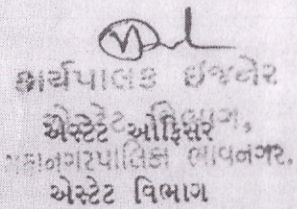 કાર્યપાલક ઈજનેર
એસ્ટેટ વિભાગ,
એસ્ટેટ ઓફિસર
મહાનગરપાલિકા ભાવનગર.
એસ્ટેટ વિભાગ